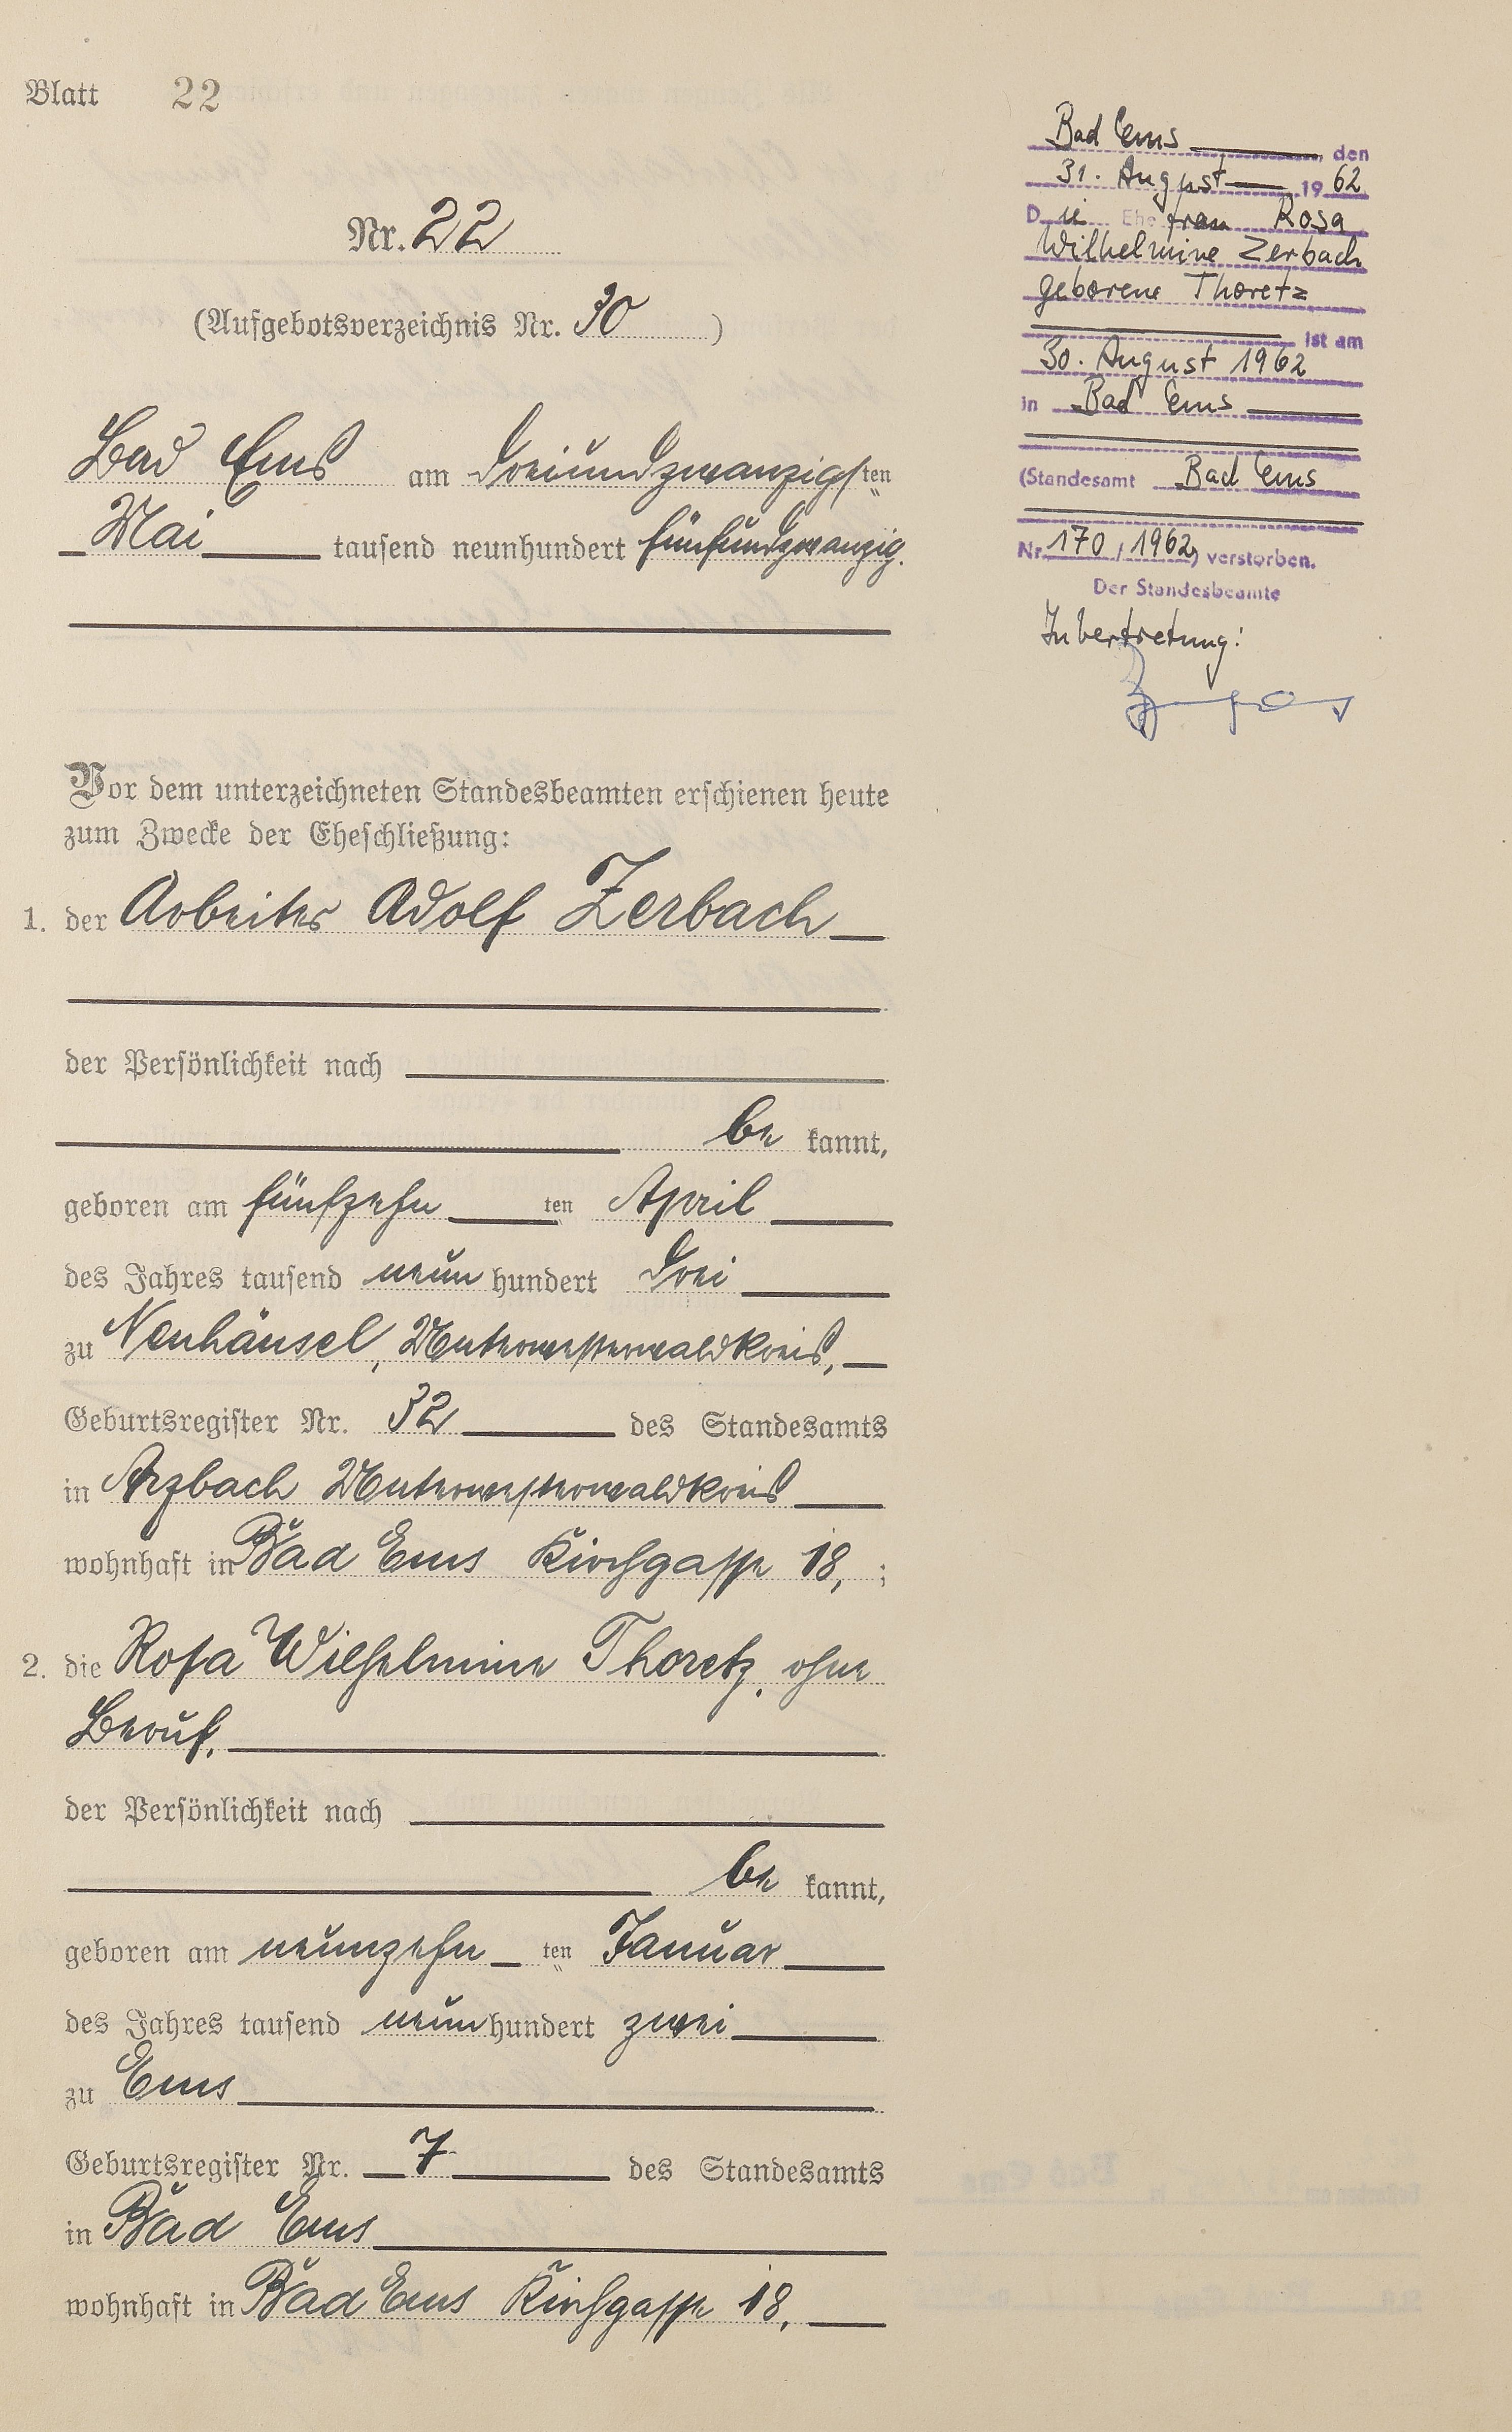 Blatt 22
Nr. 22
(Aufgebotsverzeichnis Nr. 30 )
Bad Ems am dreiundzwanzigsten
Mai tausend neunhundert fünfundzwanzig.
Vor dem unterzeichneten Standesbeamten erschienen heute
zum Zwecke der Eheschließung:
1. der Arbeiter Adolf Zerbach
der Persönlichkeit nach
be kannt,
geboren am fünfzehn ten April
des Jahres tausend neun hundert drei
zu Neuhäusel, Unterwesterwaldkreis,
Geburtsregister Nr. 32 des Standesamts
in Arzbach Unterwesterwaldkreis
wohnhaft in Bad Ems Kirchgasse 18, ;
2. die Rosa Wilhelmine Thoretz, ohne
Beruf,
der Persönlichkeit nach
be kannt,
geboren am neunzehn ten Januar
des Jahres tausend neun hundert zwei
zu Ems
Geburtsregister Nr. 7 des Standesamts
in Bad Ems
wohnhaft in Bad Ems Kirchgasse 18,
Bad Ems, den
31. August 1962
Die Ehefrau Rosa
Wilhelmine Zerbach
geborene Thoretz
ist am
30. August 1962
in Bad Ems
(Standesamt Bad Ems
Nr. 170 / 1962) verstorben.
Der Standesbeamte
In Vertretung: